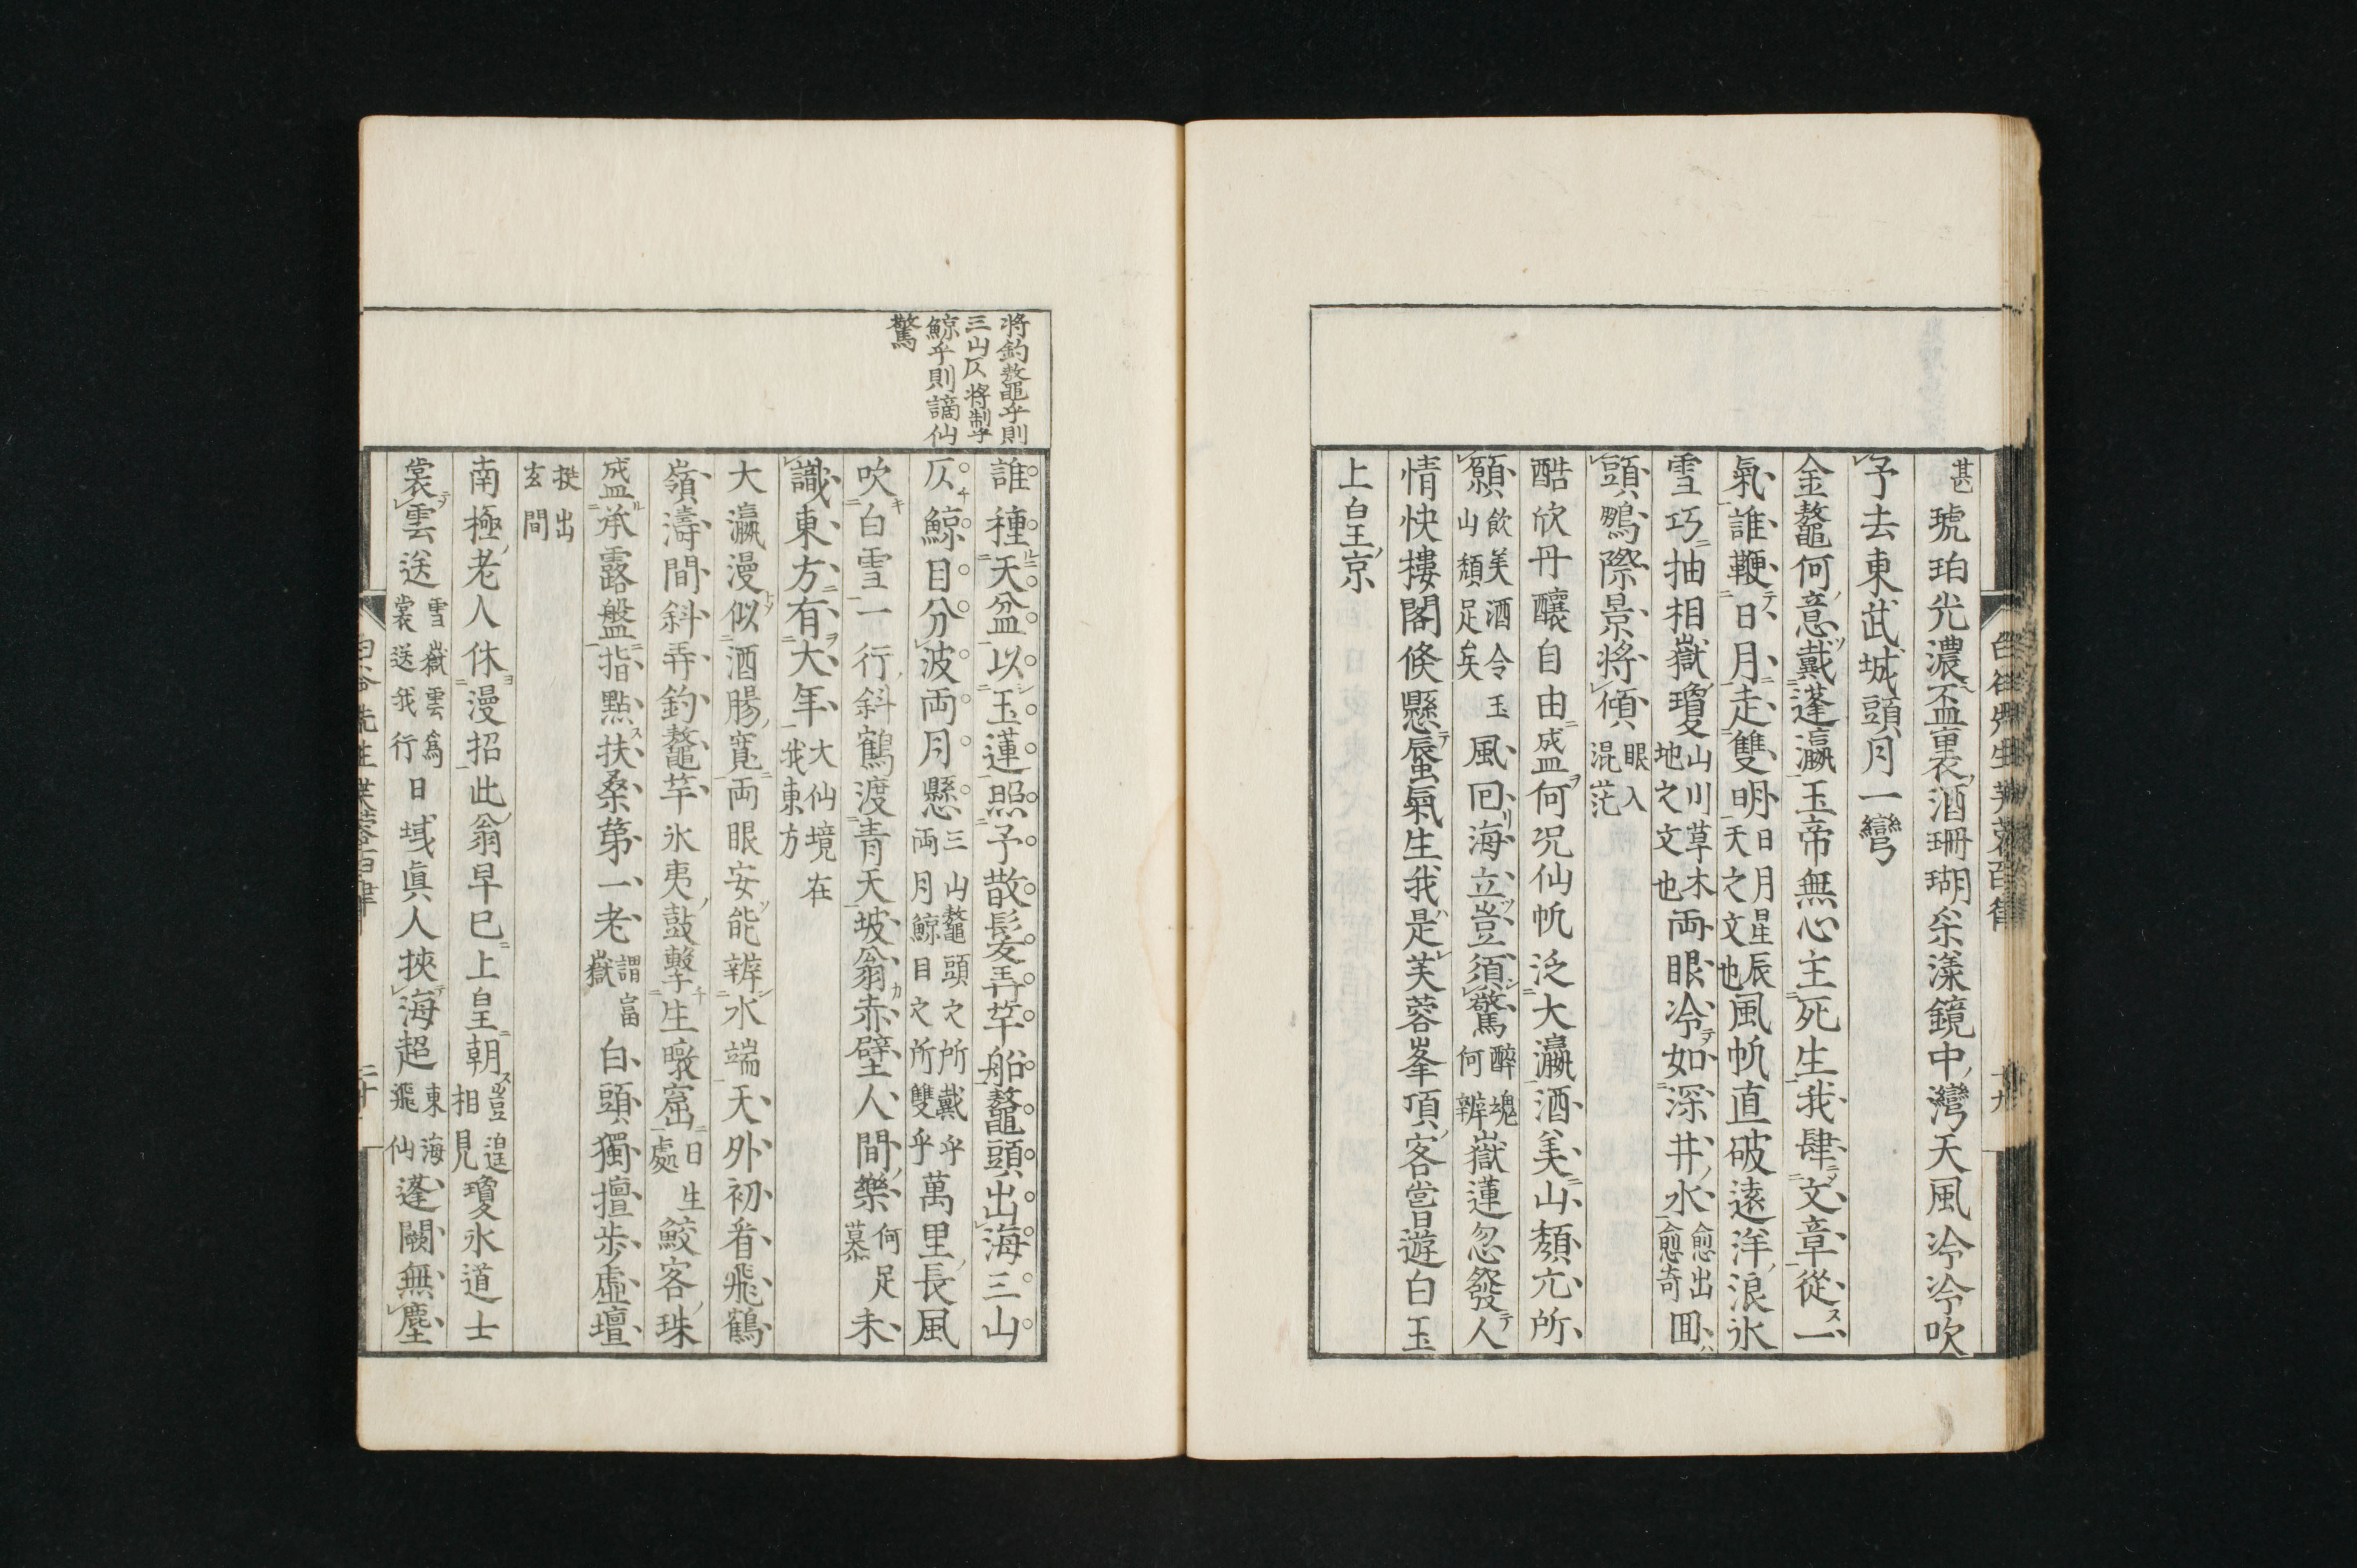 甚琥珀光濃盃裏酒珊瑚朵漾鏡中灣天風冷冷吹
予去東武城頭月一彎
金鼇何意戴蓬瀛玉帝無心主死生我肆文章從一
氣誰鞭日月走雙明日月星辰天之文也風帆直破遠洋浪氷
雪巧抽相嶽瓊山川草木地之文也両眼冷如深井水愈出愈奇囬
頭鴨際景將傾眼入混茫
酷欣丹釀自由盛何况仙帆泛大瀛酒美山頽亢所
願飲美酒令玉山頽足矣風回海立豈須驚醉魂何辨嶽蓮忽發人
情快摟閣倏懸蜃氣生我是芙蓉峯頂客嘗遊白玉
上白玉京
將釣鼇乎則
三山仄將制乎
鯨乎則謫仙
驚
誰種天盆以玉蓮照予散髮弄竿船鼇頭出海三山
仄鯨目分波両月懸三山鼇頭之所戴乎両月鯨目之所雙乎萬里長風
吹白雪一行斜鶴渡青天坡翁赤壁人間樂何足慕未
識東方有大年大仙境在我東方
大瀛漫似酒腸寬両眼安能辨水端天外初看飛鶴
嶺濤間斜弄釣鼇竿氷夷鼓擊生暾窟日生處鮫客珠
盛承露盤指點扶桑第一老謂富嶽白頭獨擅步虛壇
挾出玄間
南極老人休漫招此翁早已上皇朝豈遑相見瓊氷道士
裳雲送雪嶽雲爲裳送我行日域眞人挾海超東海飛仙蓬闕無塵